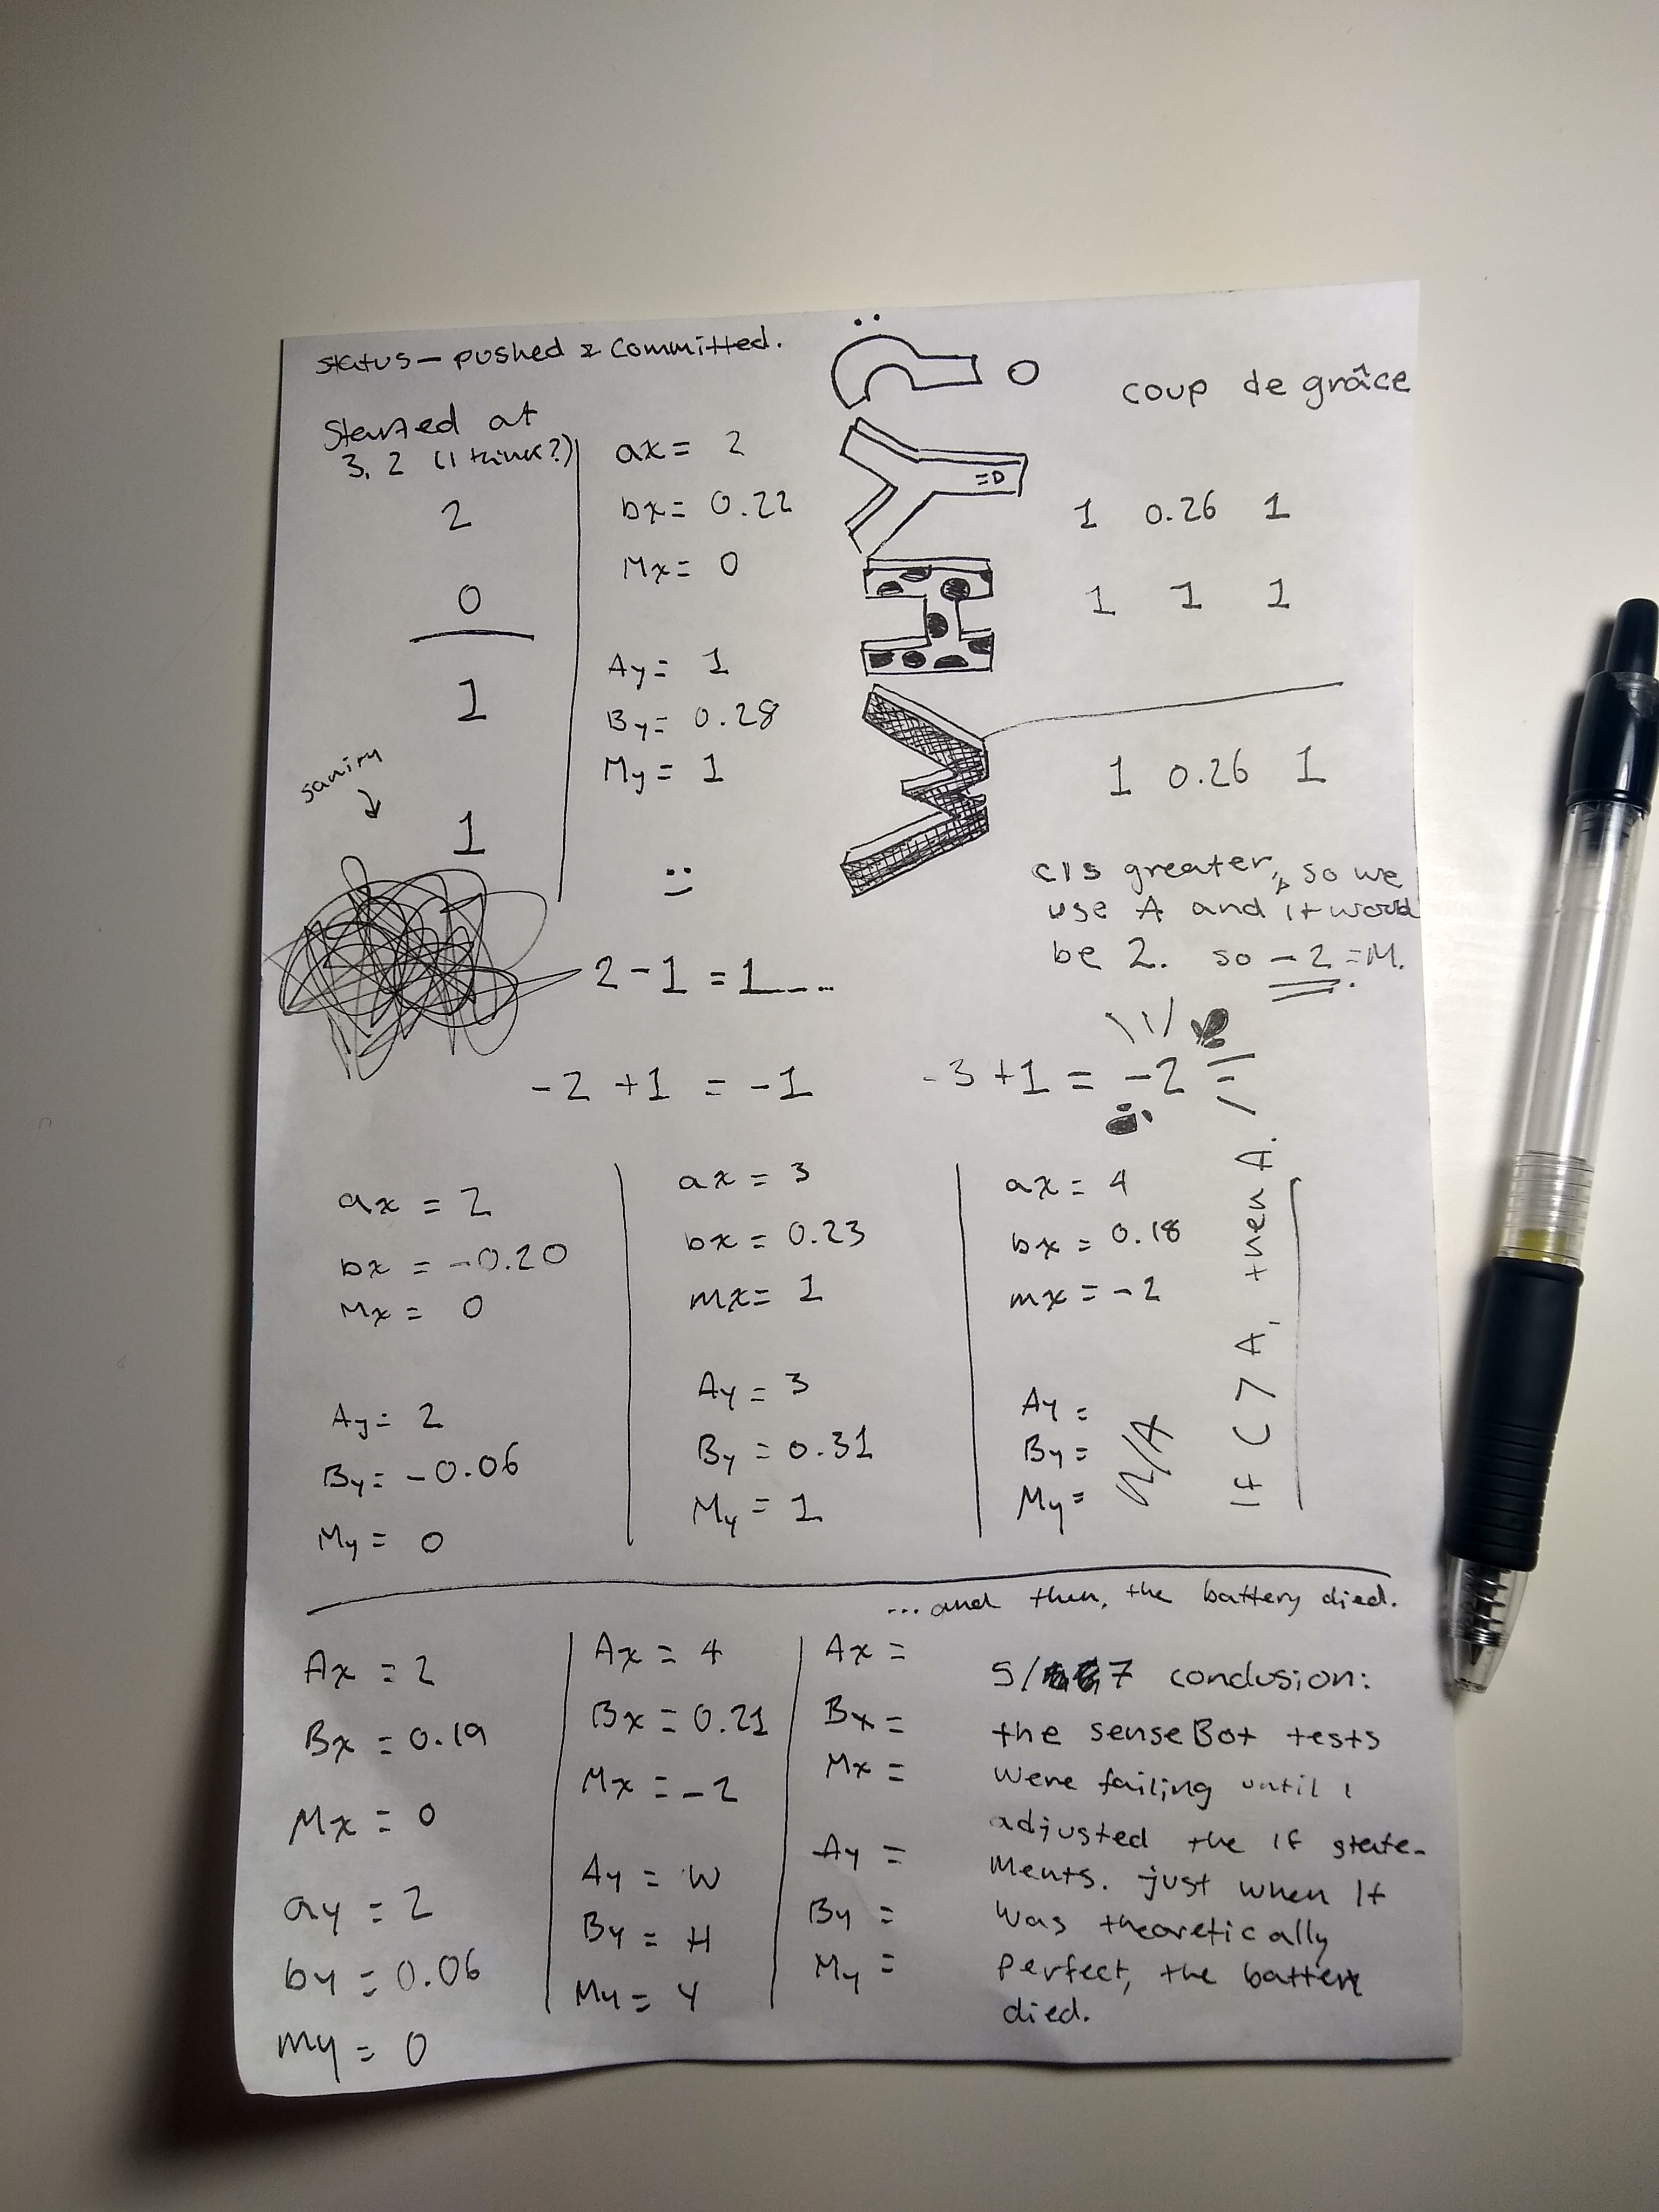 status - pushed & committed.
coup de grâce
Started at
3, 2 (I think?)
2
0
1
sanity
1
ax = 2
bx = 0.22
Mx = 0
Ay = 1
By = 0.28
My = 1
:)
?
Y =D
I
M
1 0.26 1
1 1 1
1 0.26 1
C is greater, so we
use A and it would
be 2. so -2 = M.
2 - 1 = 1...
-2 + 1 = -1
-3 + 1 = -2
ax = 2
bx = -0.20
Mx = 0
Ay = 2
By = -0.06
My = 0
ax = 3
bx = 0.23
mx = 1
Ay = 3
By = 0.31
My = 1
ax = 4
bx = 0.18
mx = -2
Ay =
By =
My =
N/A
If C > A, then A.
...and then, the battery died.
Ax = 2
Bx = 0.19
Mx = 0
ay = 2
by = 0.06
my = 0
Ax = 4
Bx = 0.21
Mx = -2
Ay = W
By = H
My = Y
Ax =
Bx =
Mx =
Ay =
By =
My =
5/7 conclusion:
the senseBot tests
were failing until I
adjusted the if state-
ments. just when it
was theoretically
perfect, the battery
died.